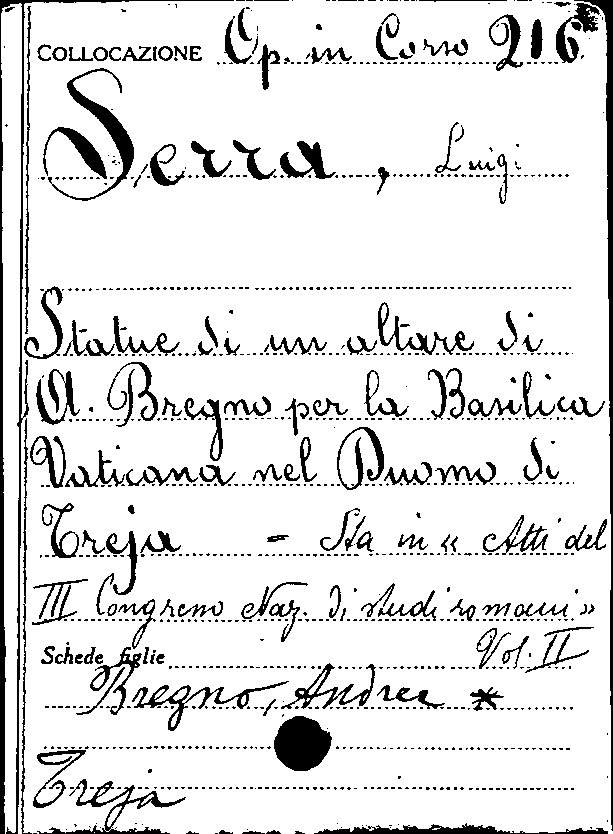 COLLOCAZIONE Op. in Corso 216
Serra, Luigi
Statue di un altare di
A. Bregno per la Basilica
Vaticana nel Duomo di
Treja - Sta in « Atti del
III Congresso Naz. di studi romani »
Schede figlie Vol. II
Bregno, Andrea *
Treja